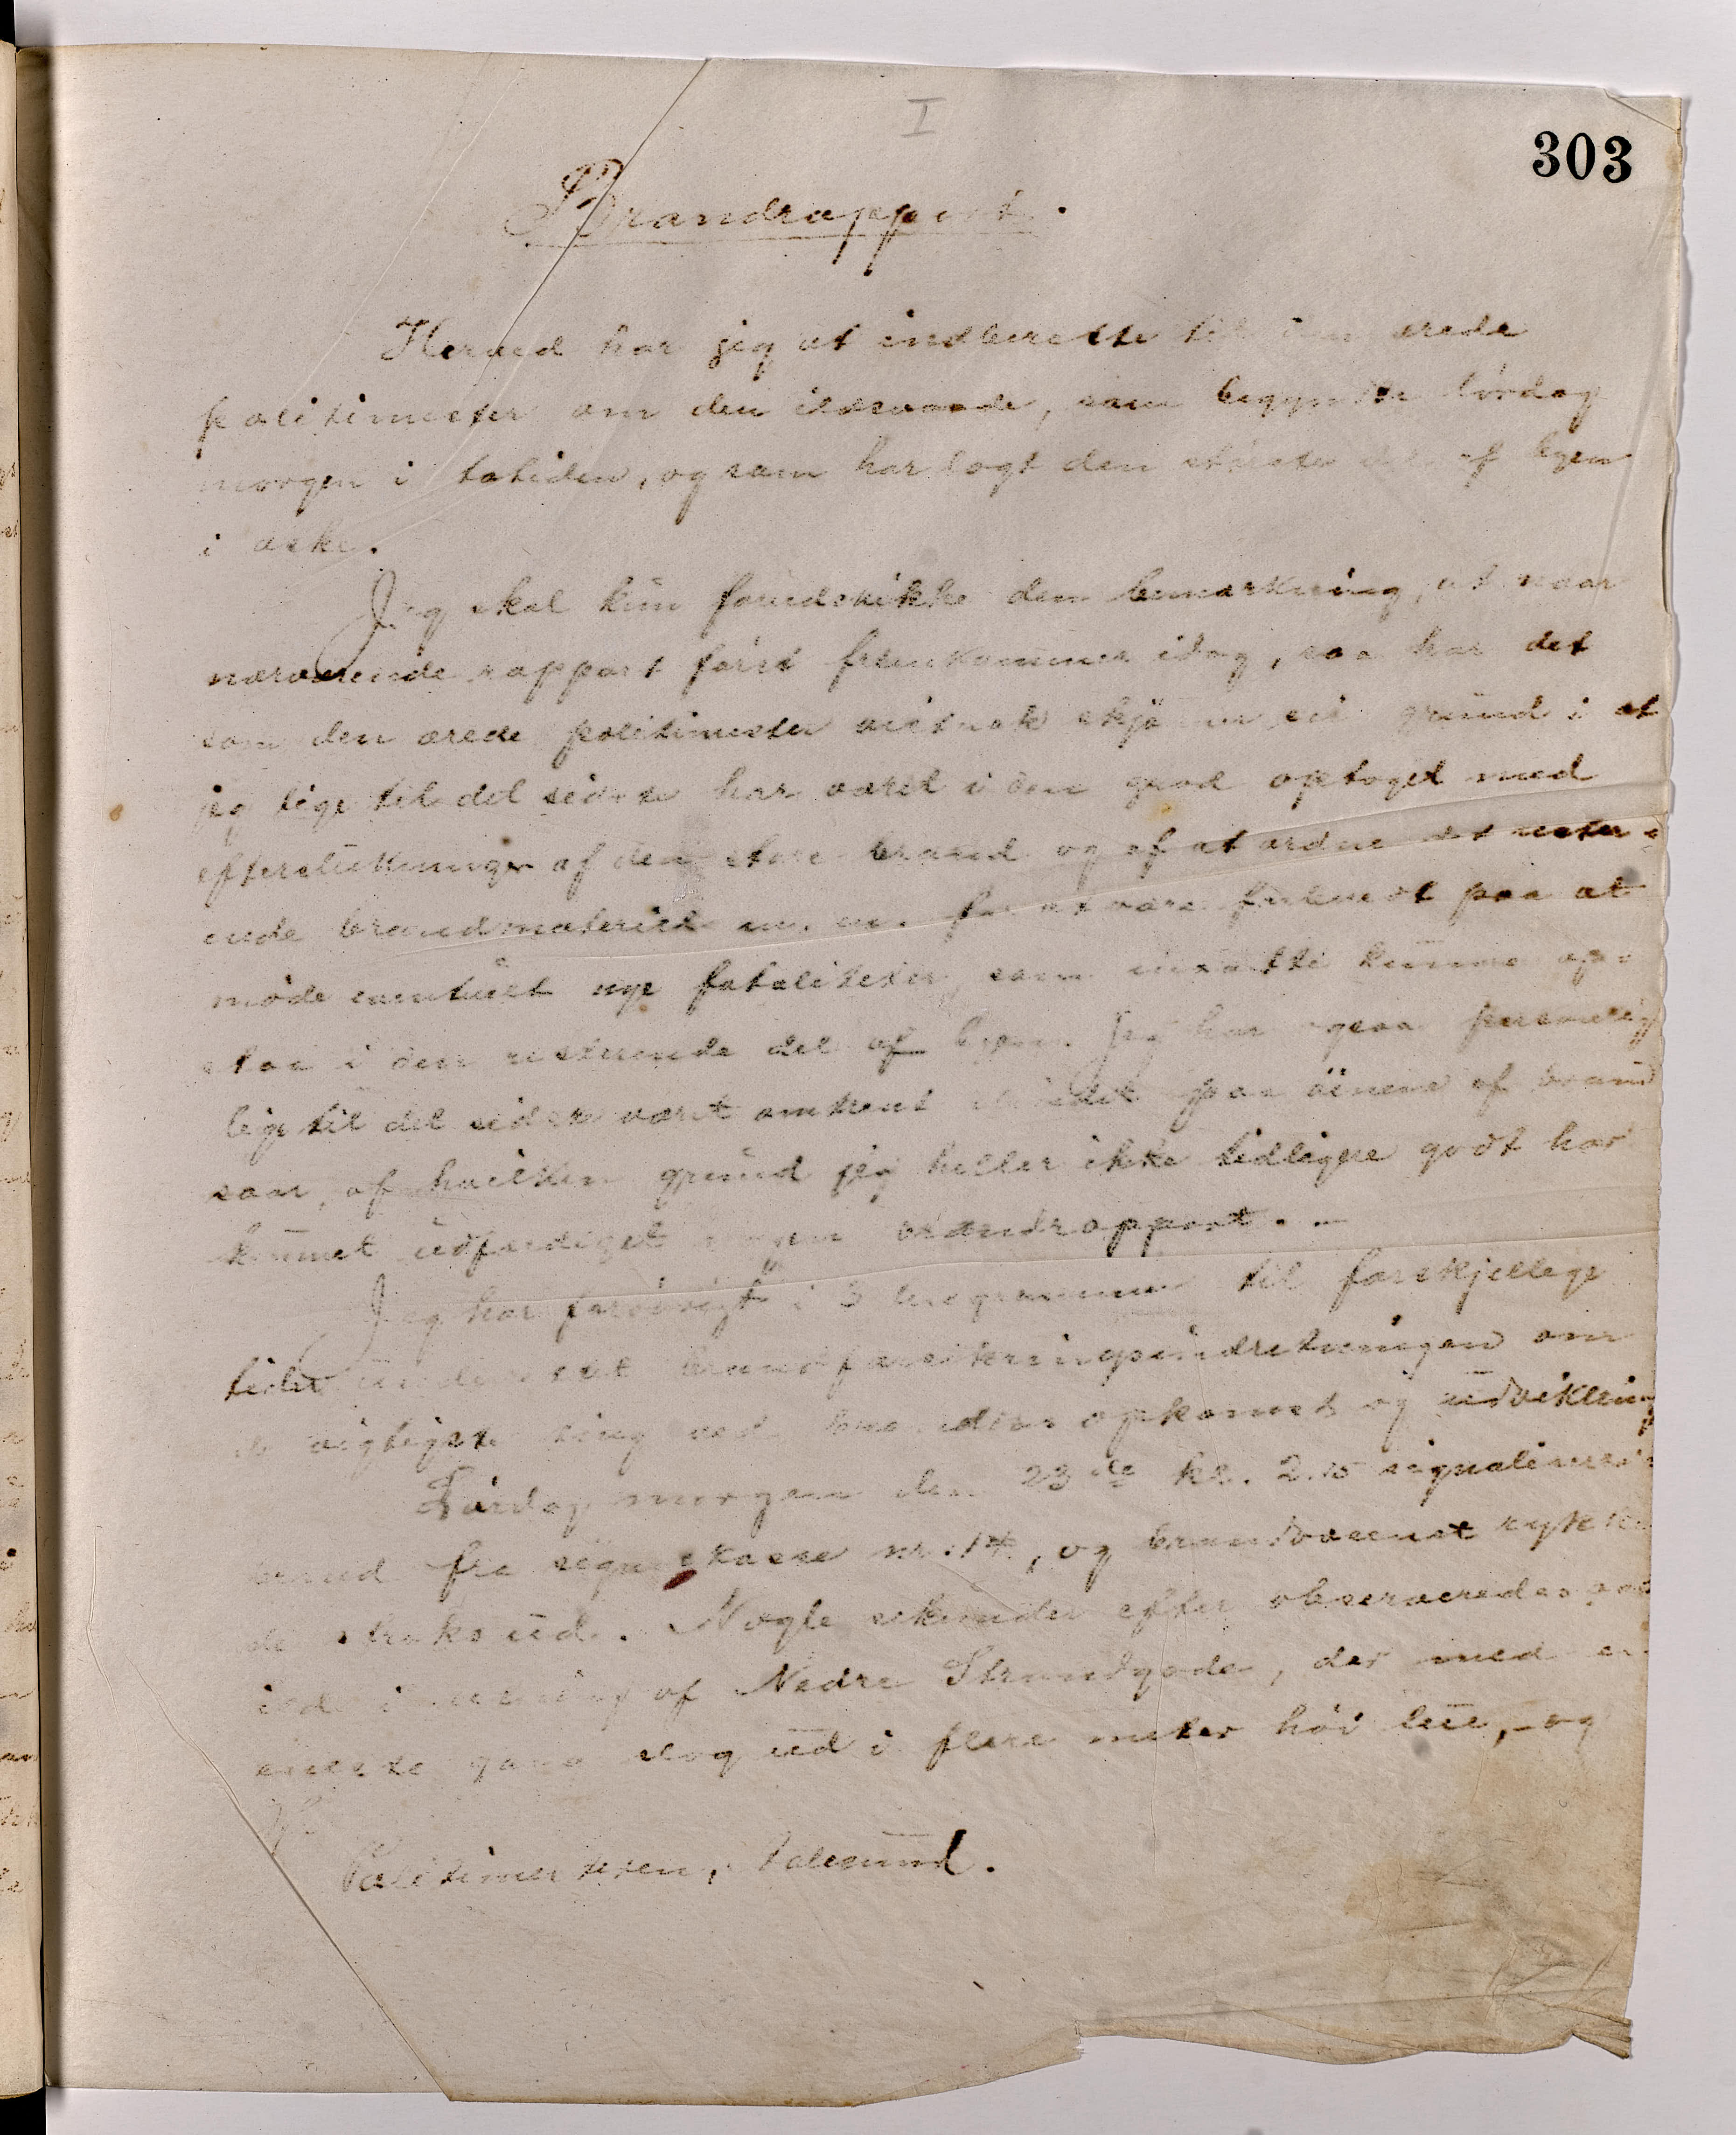 I
303
Brandrapport.
Herved har jeg at indberette til den ærede
politimester om den ildsvaade, som begyndte lördag
morgen i totiden, og som har lagt den största del af byen
i aske.
Jeg skal kun forudskikke den bemærkning, at naar
nærværende rapport först fremkommer idag, saa har det
som den ærede politimester vistnok skjönner sin grund i at
jeg lige til det sidste har været i den grad optaget med
efterslukningen af den store brand og af at ordne det rester-
ende brandmateriel m. m. for at være forberedt paa at
möde eventuelt nye fataliteter, som maatte kunne op-
staa i den resterende del af byen. Jeg har ogsaa personlig
lige til det sidste været omtrent blindet paa öinene af brand
saar, af hvilken grund jeg heller ikke tidligere godt har
kunnet udfærdiget nogen brandrapport. -
Jeg har forövrigt i 3 telegrammer til forskjellige
tider underrettet brandforsikringsindretningen om
de vigtigste ting ved brandens opkomst og udvikling
Lördag morgen den 23de kl. 2.15 signaliseres
brand fra signalkasse nr. 14, og brandvæsenet rykke
de straks ud. Nogle sekunder efter observeredes
ild i retning af Nedre Strandgade, der med en
eneste gang slog ud i flere meter höi lue, - og
Politimesteren, Aalesund.